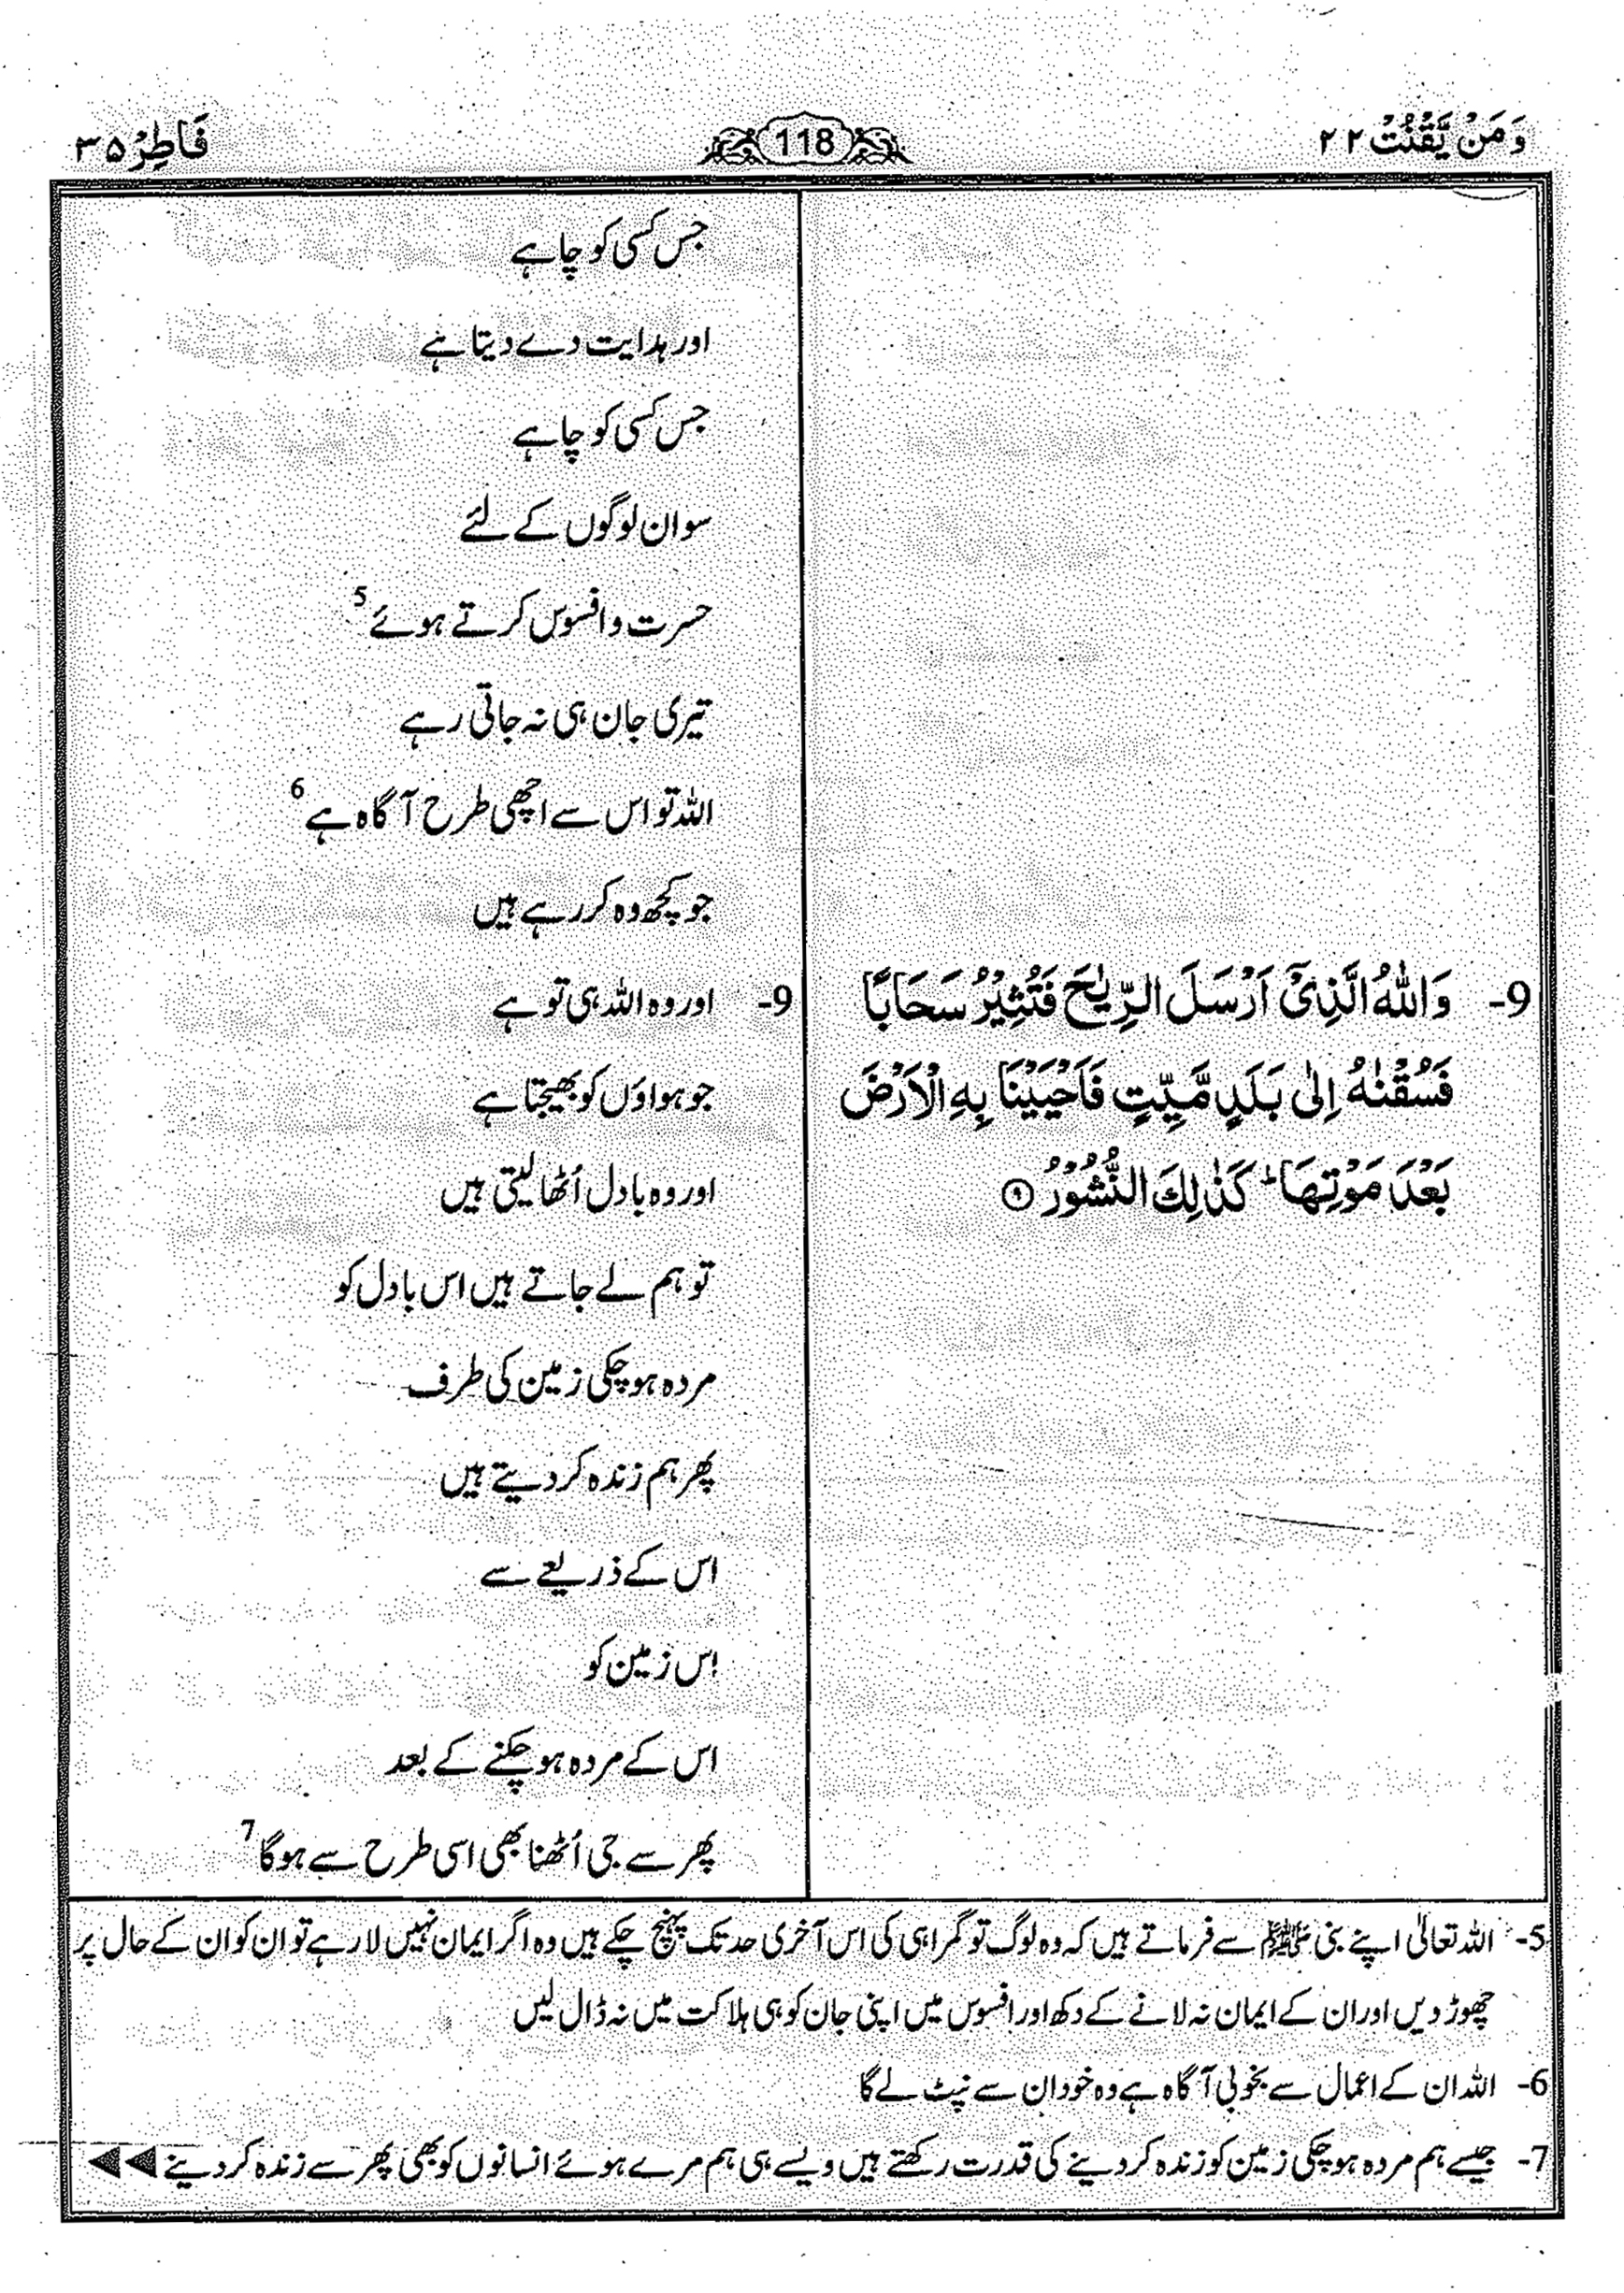 وَمَنْ يَّقْنُتْ ۲۲
118
فَاطِرْ ۳۵
جس کسی کو چاہے
اور ہدایت دے دیتا ہے
جس کسی کو چاہے
سو ان لوگوں کے لئے
حسرت و افسوس کرتے ہوئے 5
تیری جان ہی نہ جاتی رہے
اللہ تو اس سے اچھی طرح آگاہ ہے 6
جو کچھ وہ کر رہے ہیں
9- وَاللّٰهُ الَّذِیْۤ اَرْسَلَ الرِّیٰحَ فَتُثِیْرُ سَحَابًا
فَسُقْنٰهُ اِلٰی بَلَدٍ مَّیِّتٍ فَاَحْیَیْنَا بِهِ الْاَرْضَ
بَعْدَ مَوْتِهَا ؕ كَذٰلِكَ النُّشُوْرُ ۹
9- اور وہ اللہ ہی تو ہے
جو ہواؤں کو بھیجتا ہے
اور وہ بادل اُٹھا لیتی ہیں
تو ہم لے جاتے ہیں اس بادل کو
مردہ ہو چکی زمین کی طرف
پھر ہم زندہ کر دیتے ہیں
اس کے ذریعے سے
اِس زمین کو
اس کے مردہ ہو چکنے کے بعد
پھر سے جی اُٹھنا بھی اسی طرح سے ہوگا 7
5- اللہ تعالیٰ اپنے نبی ﷺ سے فرماتے ہیں کہ وہ لوگ تو گمراہی کی اس آخری حد تک پہنچ چکے ہیں وہ اگر ایمان نہیں لا رہے تو ان کو ان کے حال پر
چھوڑ دیں اور ان کے ایمان نہ لانے کے دکھ اور افسوس میں اپنی جان کو ہی ہلاکت میں نہ ڈال لیں
6- اللہ ان کے اعمال سے بخوبی آگاہ ہے وہ خود ان سے نپٹ لے گا
7- جیسے ہم مردہ ہو چکی زمین کو زندہ کر دینے کی قدرت رکھتے ہیں ویسے ہی ہم مرے ہوئے انسانوں کو بھی پھر سے زندہ کر دینے ◀◀